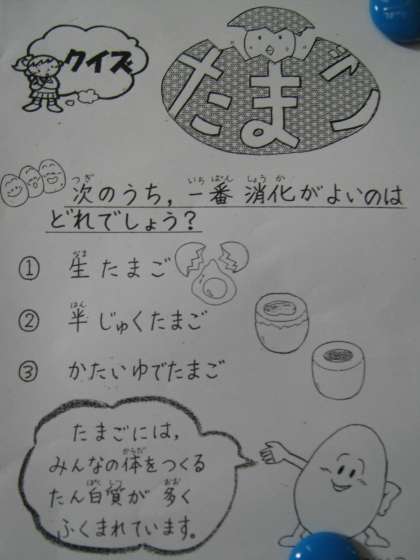 クイズ
たまご
次のうち，一番 消化がよいのは
どれでしょう？
① 生たまご
② 半じゅくたまご
③ かたいゆでたまご
たまごには，
みんなの体をつくる
たん白質が 多く
ふくまれています。